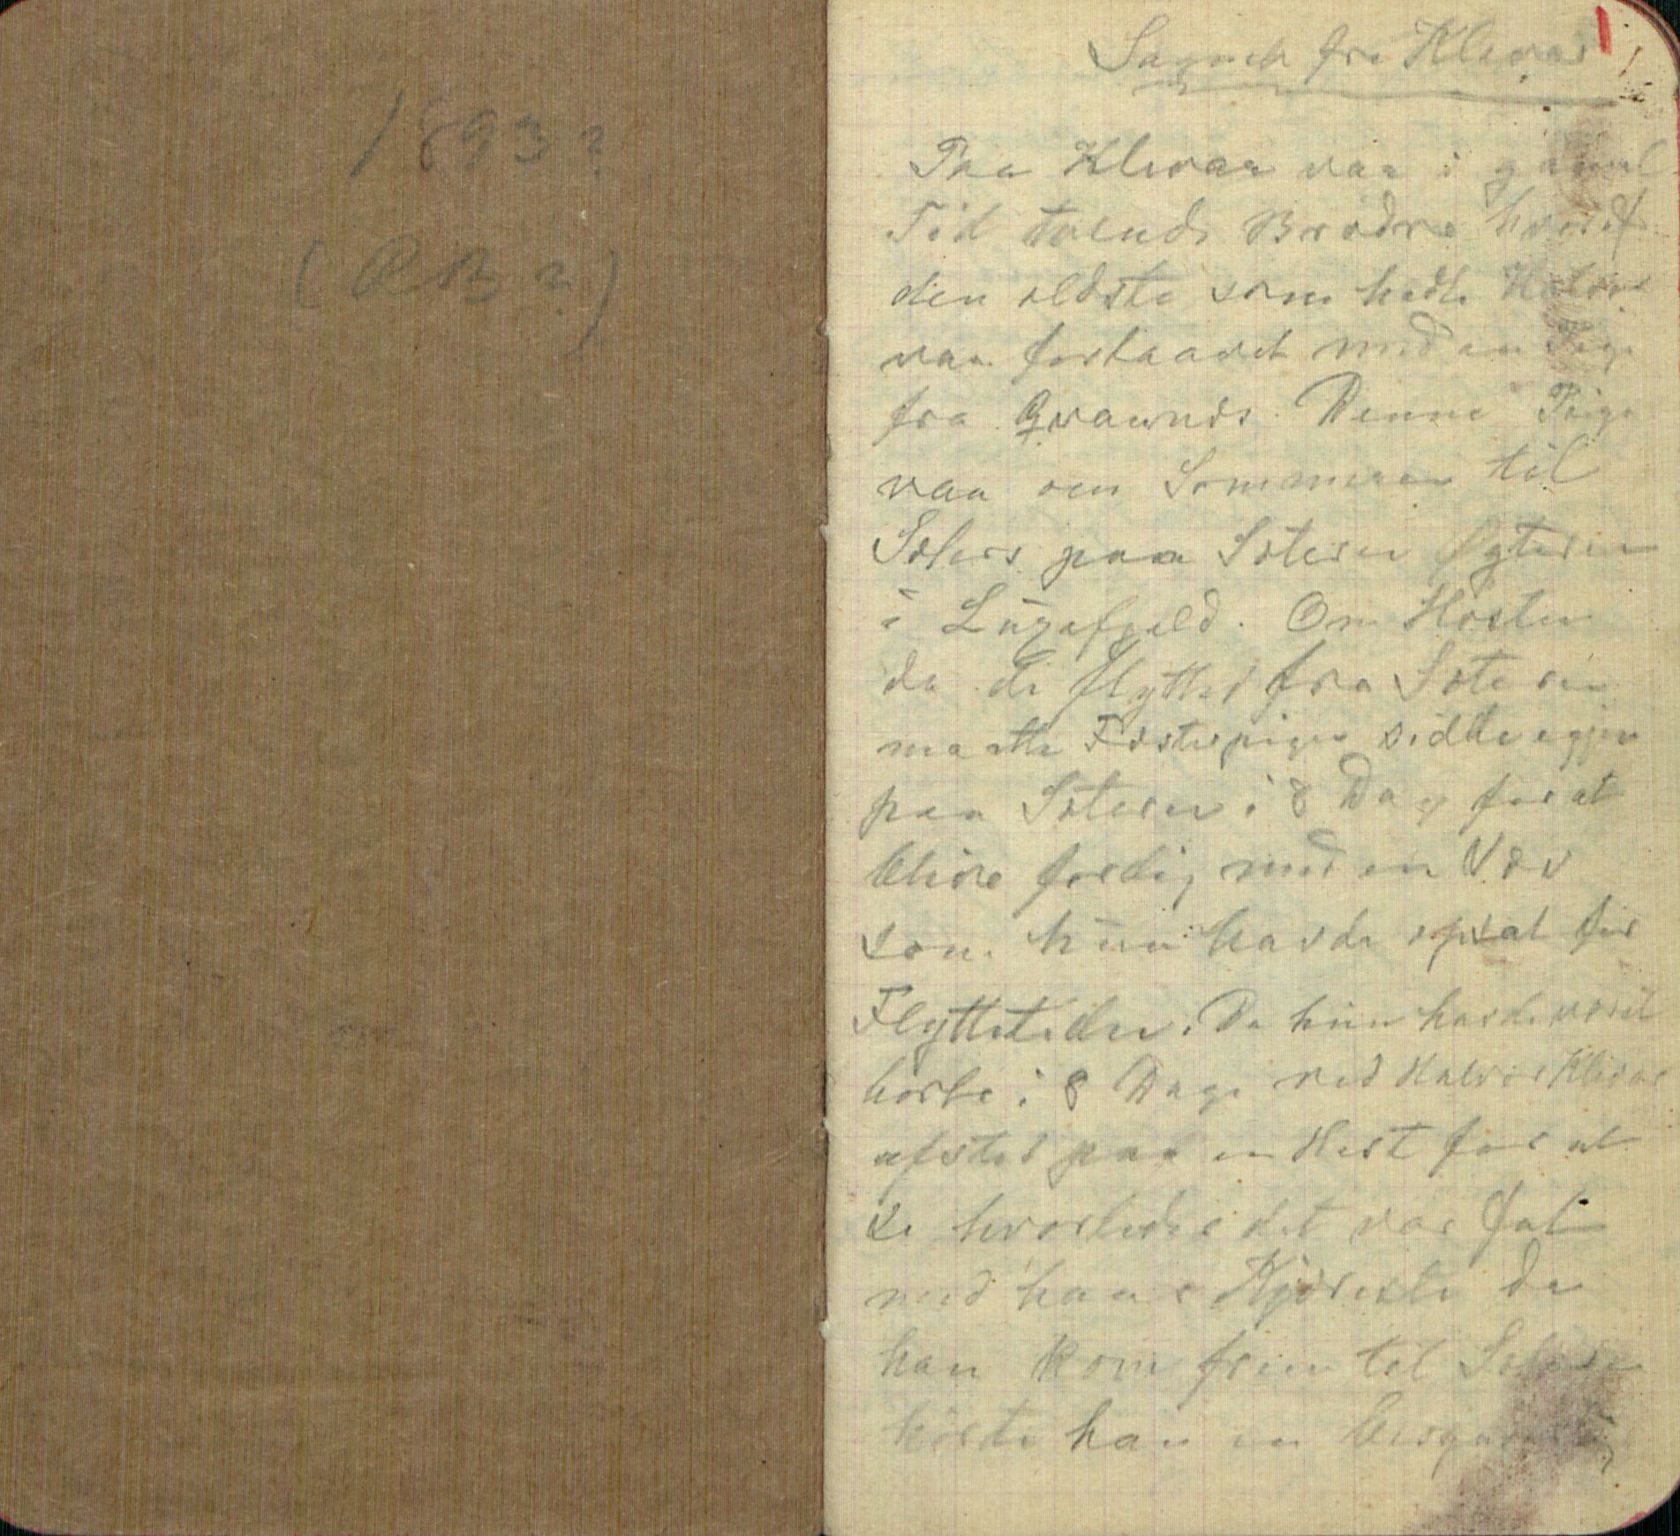 1893?
(RB?)
1
Sagnet fra Klevar
Paa Klevar vaa i gammel
Tid tolends Brødre hvoraf
den eldste som hedte Halvor
vaa forlaavet med en Pige
fra Qvavnds. Denne Pige
vaa oen Sommaar til
Sæters paa Sæteren
i Lugafjeld. Om Høsten
da de flytted fra Sæteren
maatte Fæstepigen sidde igjen
paa Sæteren i 8 Dag for at
blive ferdig med en Væv
som hun havde opsat før
Flyttetiden. Da hun havde været
borte i 8 Dage red Halvor Klevar
afsted paa en Hest for at
se hvorledes det var fat
med hans Kjæreste da
han kom frem til Sæteren
hørte han en